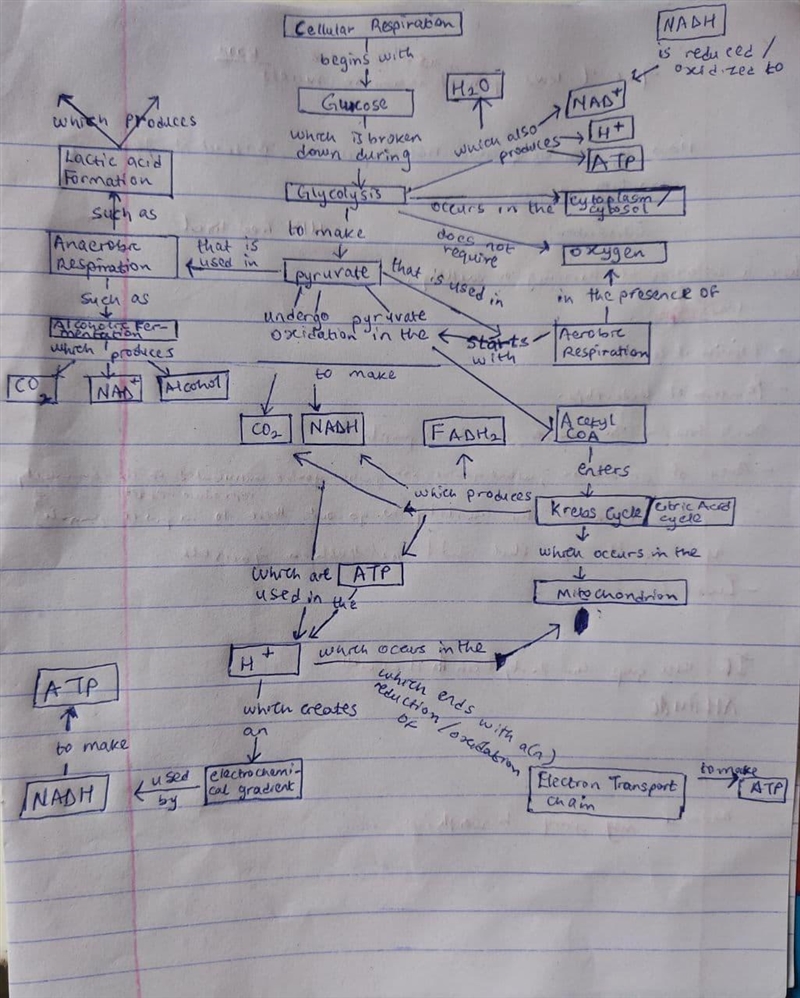 Cellular Respiration
NADH
begins with
is reduced /
oxidized to
H2O
Glucose
NAD+
which produces
which is broken
down during
which also
produces
H+
Lactic acid
Formation
ATP
Glycolysis
occurs in the
cytoplasm/
cytosol
such as
to make
does not
require
Anaerobic
Respiration
that is
used in
pyruvate
that is used in
oxygen
such as
undergo pyruvate
oxidation in the
in the presence of
Alcoholic Fer-
mentation
starts
with
Aerobic
Respiration
which produces
CO2
NAD+
Alcohol
to make
CO2
NADH
FADH2
Acetyl
COA
enters
which produces
Krebs Cycle / Citric Acid
cycle
which occurs in the
which are
used in the
ATP
Mitochondrion
H+
which occurs in the
ATP
which creates
an
which ends with a(n)
reduction/oxidation
of
to make
NADH
used
by
electrochemi-
cal gradient
Electron Transport
chain
to make
ATP